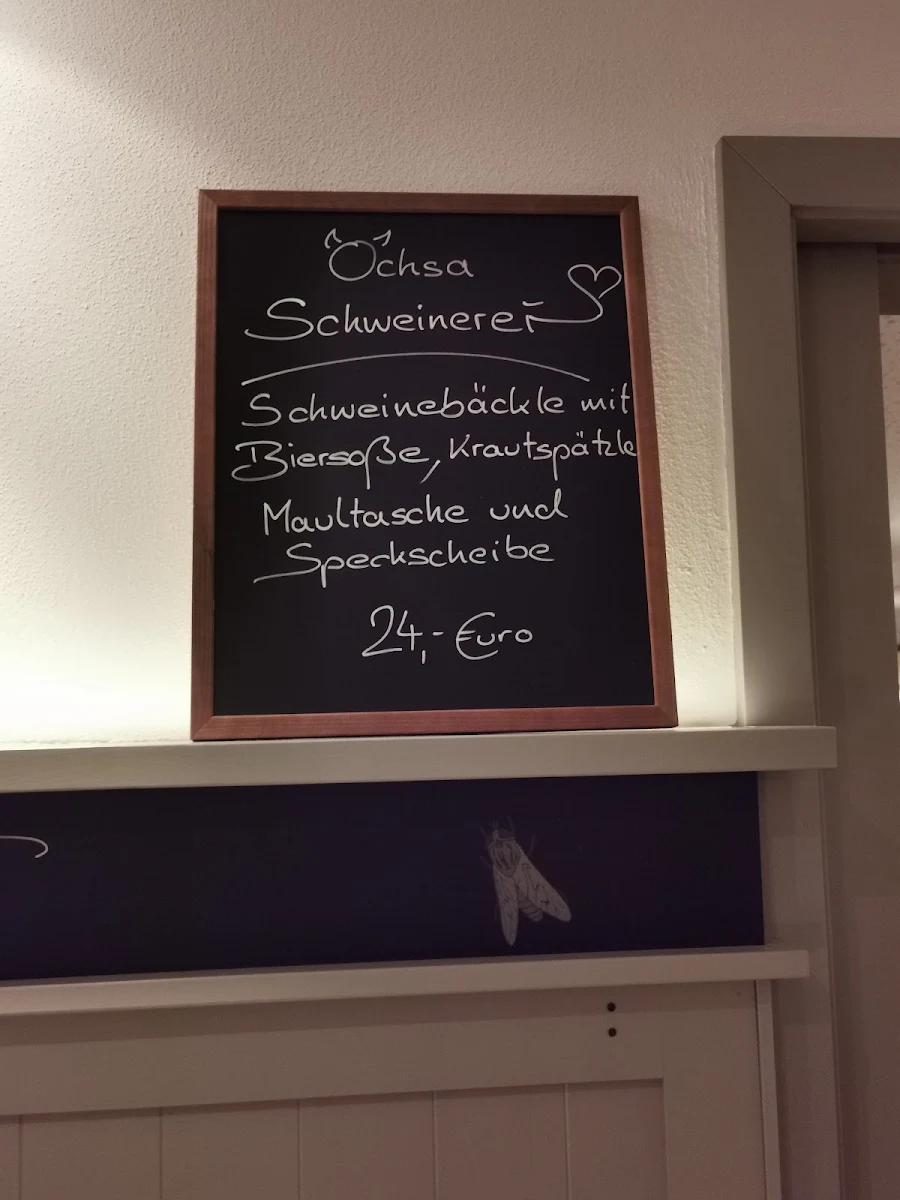 Ochsa
Schweinerei
Schweinebäckle mit
Biersoße, Krautspätzle
Maultasche und
Speckscheibe
24,- Euro